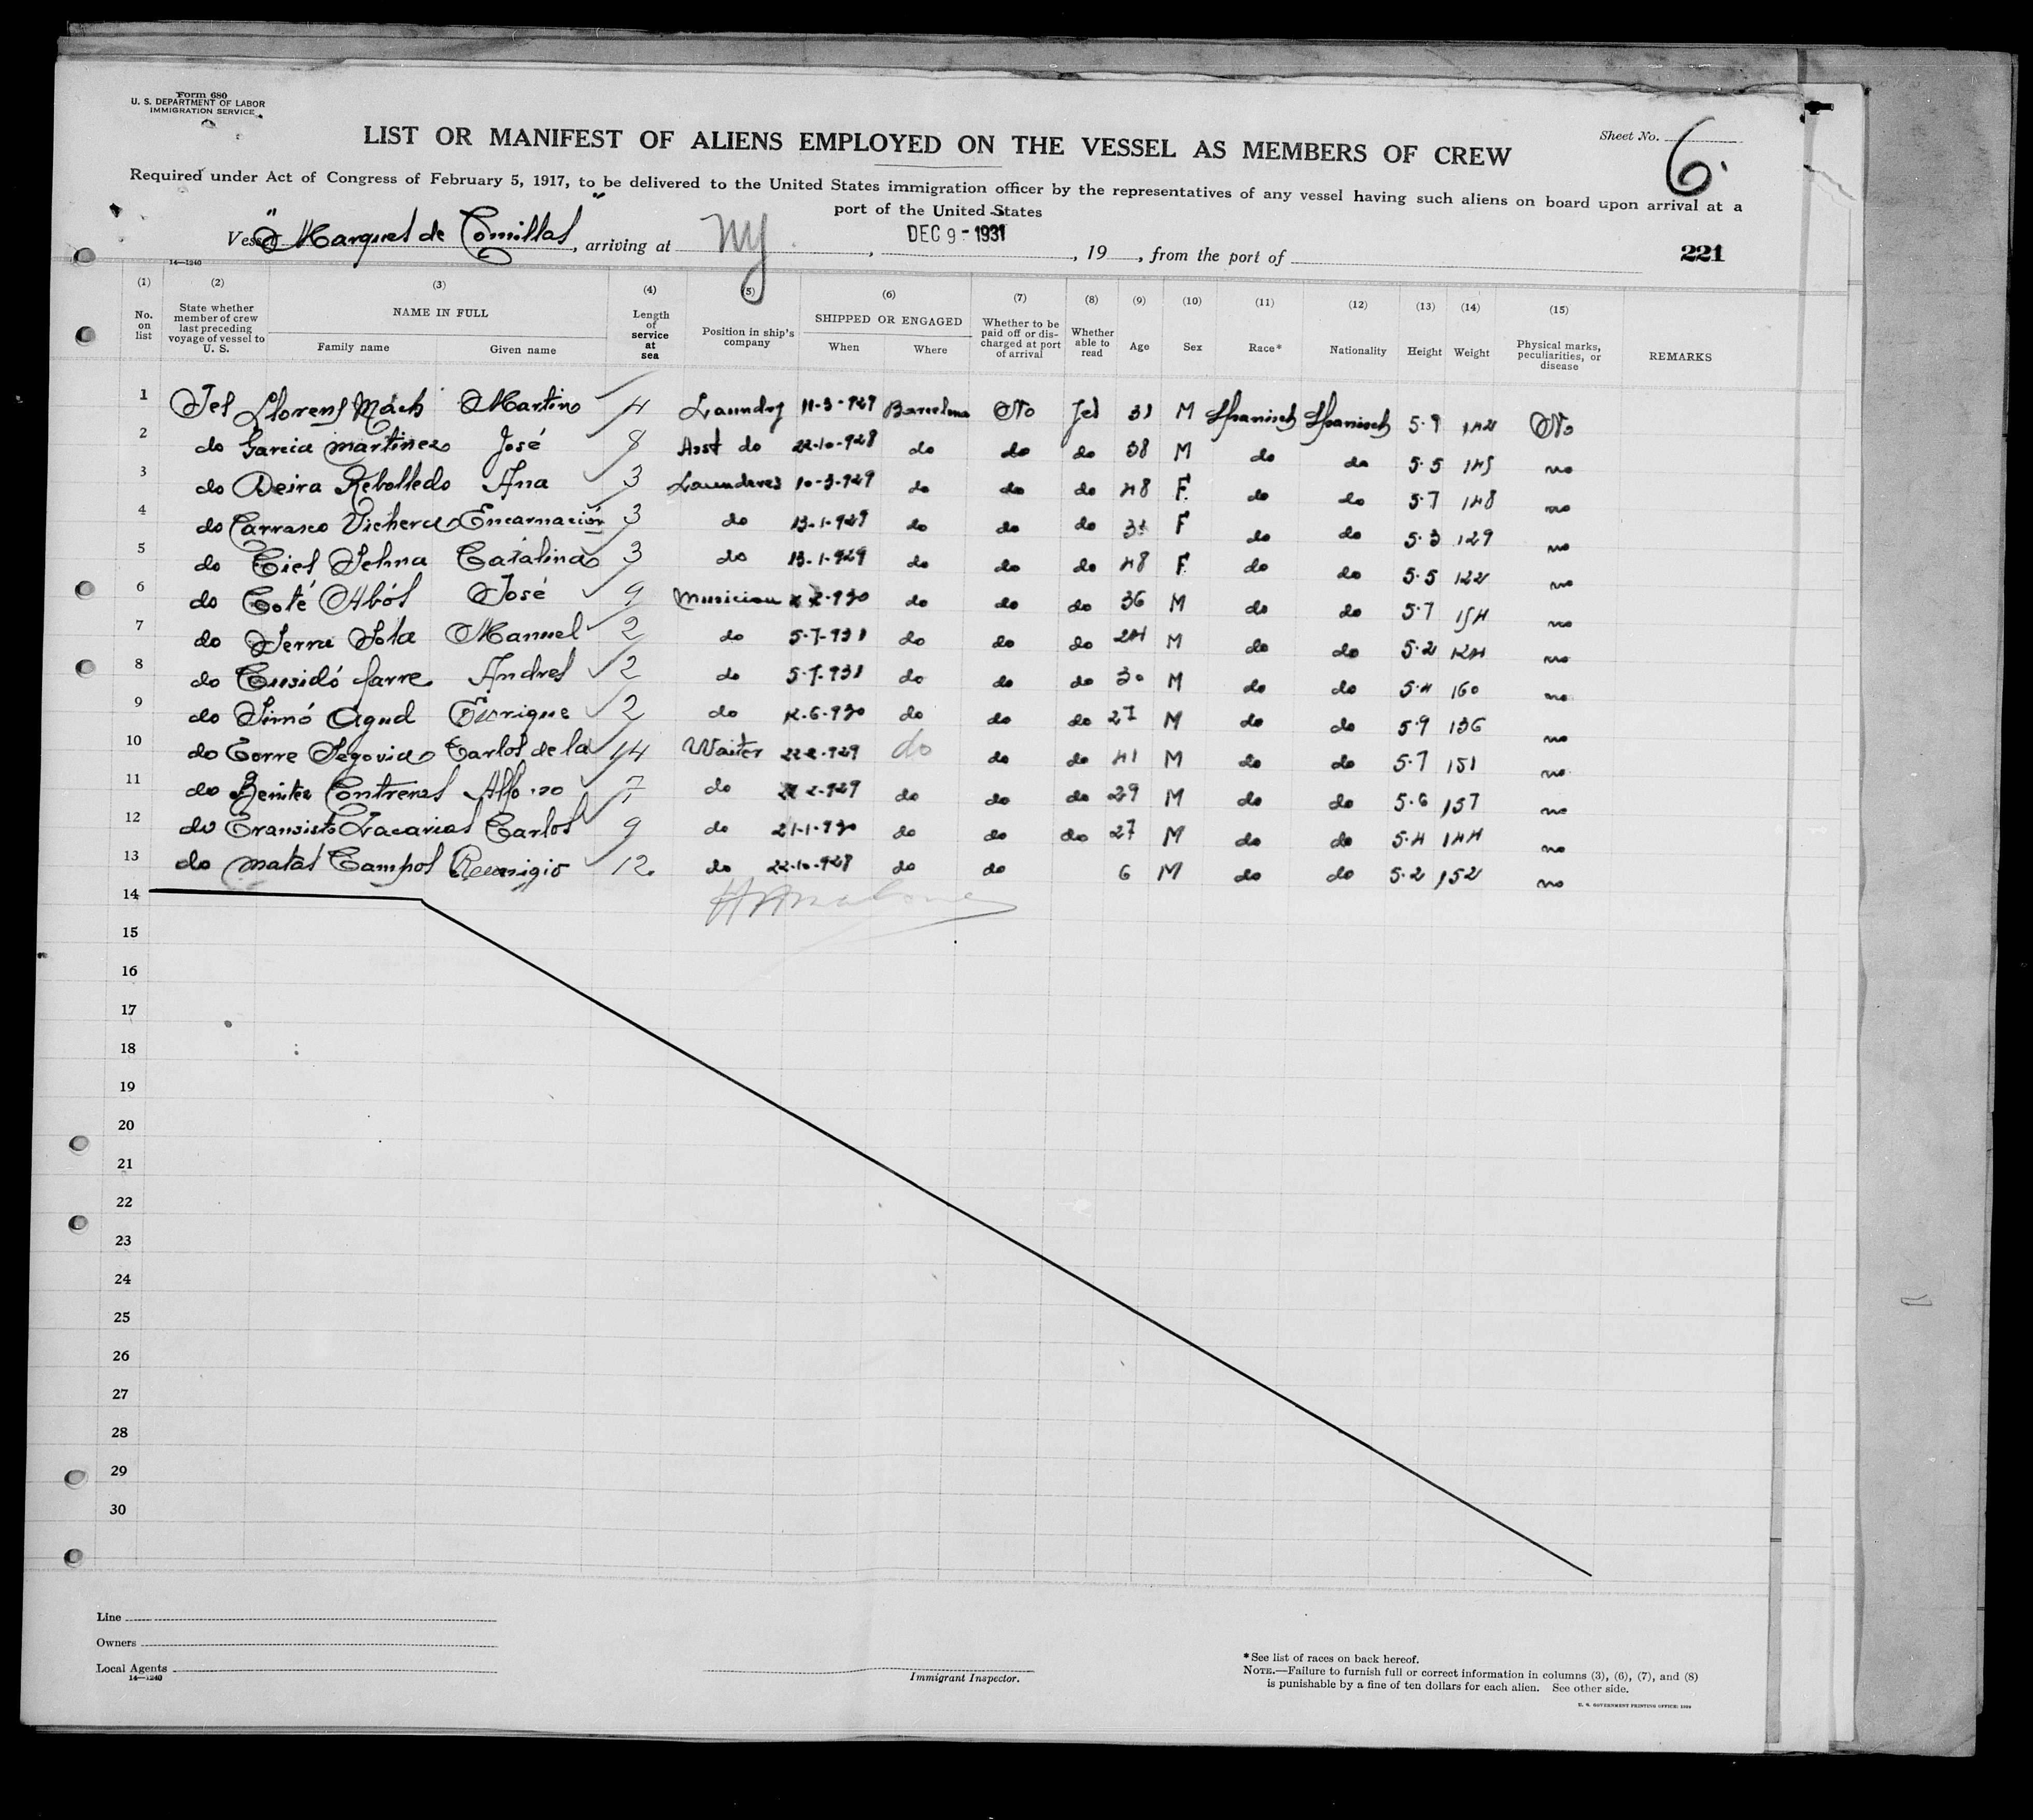 Form 680
U. S. DEPARTMENT OF LABOR
IMMIGRATION SERVICE
Sheet No. 6.
LIST OR MANIFEST OF ALIENS EMPLOYED ON THE VESSEL AS MEMBERS OF CREW
Required under Act of Congress of February 5, 1917, to be delivered to the United States immigration officer by the representatives of any vessel having such aliens on board upon arrival at a
port of the United States
Vessel "Marques de Comillas", arriving at NY, DEC 9 - 1931, 19, from the port of
221
14—1240
(1) (2) (3) (4) (5) (6) (7) (8) (9) (10) (11) (12) (13) (14) (15)
No. on list State whether member of crew last preceding voyage of vessel to U. S. NAME IN FULL Family name Given name Length of service at sea Position in ship's company SHIPPED OR ENGAGED When Where Whether to be paid off or discharged at port of arrival Whether able to read Age Sex Race* Nationality Height Weight Physical marks, peculiarities, or disease REMARKS
1 Yes Llorens Mach Martin 4 Laundry 11-3-929 Barcelona No Yes 31 M Spanisch Spanisch 5.9 142 No
2 do Garcia Martinez José 8 Asst do 22-10-928 do do do 38 M do do 5.5 145 no
3 do Deira Rebolledo Ana 3 Laundres 10-3-929 do do do 48 F. do do 5.7 148 no
4 do Carrasco Encarnación 3 do 13-1-929 do do do F do do 5.3 129 no
5 do Catalina 3 do 13-1-929 do do do 48 F. do do 5.5 122 no
6 do José 9 Musician 930 do do do 36 M do do 5.7 154 no
7 do Serra Sola Manuel 2 do 5-7-931 do do do 24 M do do 5.2 124 no
8 do Cusidó farre Andres 2 do 5-7-931 do do do 30 M do do 5.4 160 no
9 do Simó Agud Enrique 2 do 12-6-930 do do do 27 M do do 5.9 136 no
10 do Torre Segovia Carlos de la 14 Waiter 22-2-929 do do do 41 M do do 5.7 151 no
11 do Benitez Contreras Alfonso 7 do 2-929 do do do 29 M do do 5.6 157 no
12 do Zacarias Carlos 9 do 21-1-930 do do do 27 M do do 5.4 144 no
13 do Matas Campos Remigio 12. do 22-10-928 do do 6 M do do 5.2 152 no
14
15
16
17
18
19
20
21
22
23
24
25
26
27
28
29
30
Line
Owners
Local Agents
14—1240
Immigrant Inspector.
*See list of races on back hereof.
NOTE.—Failure to furnish full or correct information in columns (3), (6), (7), and (8)
is punishable by a fine of ten dollars for each alien. See other side.